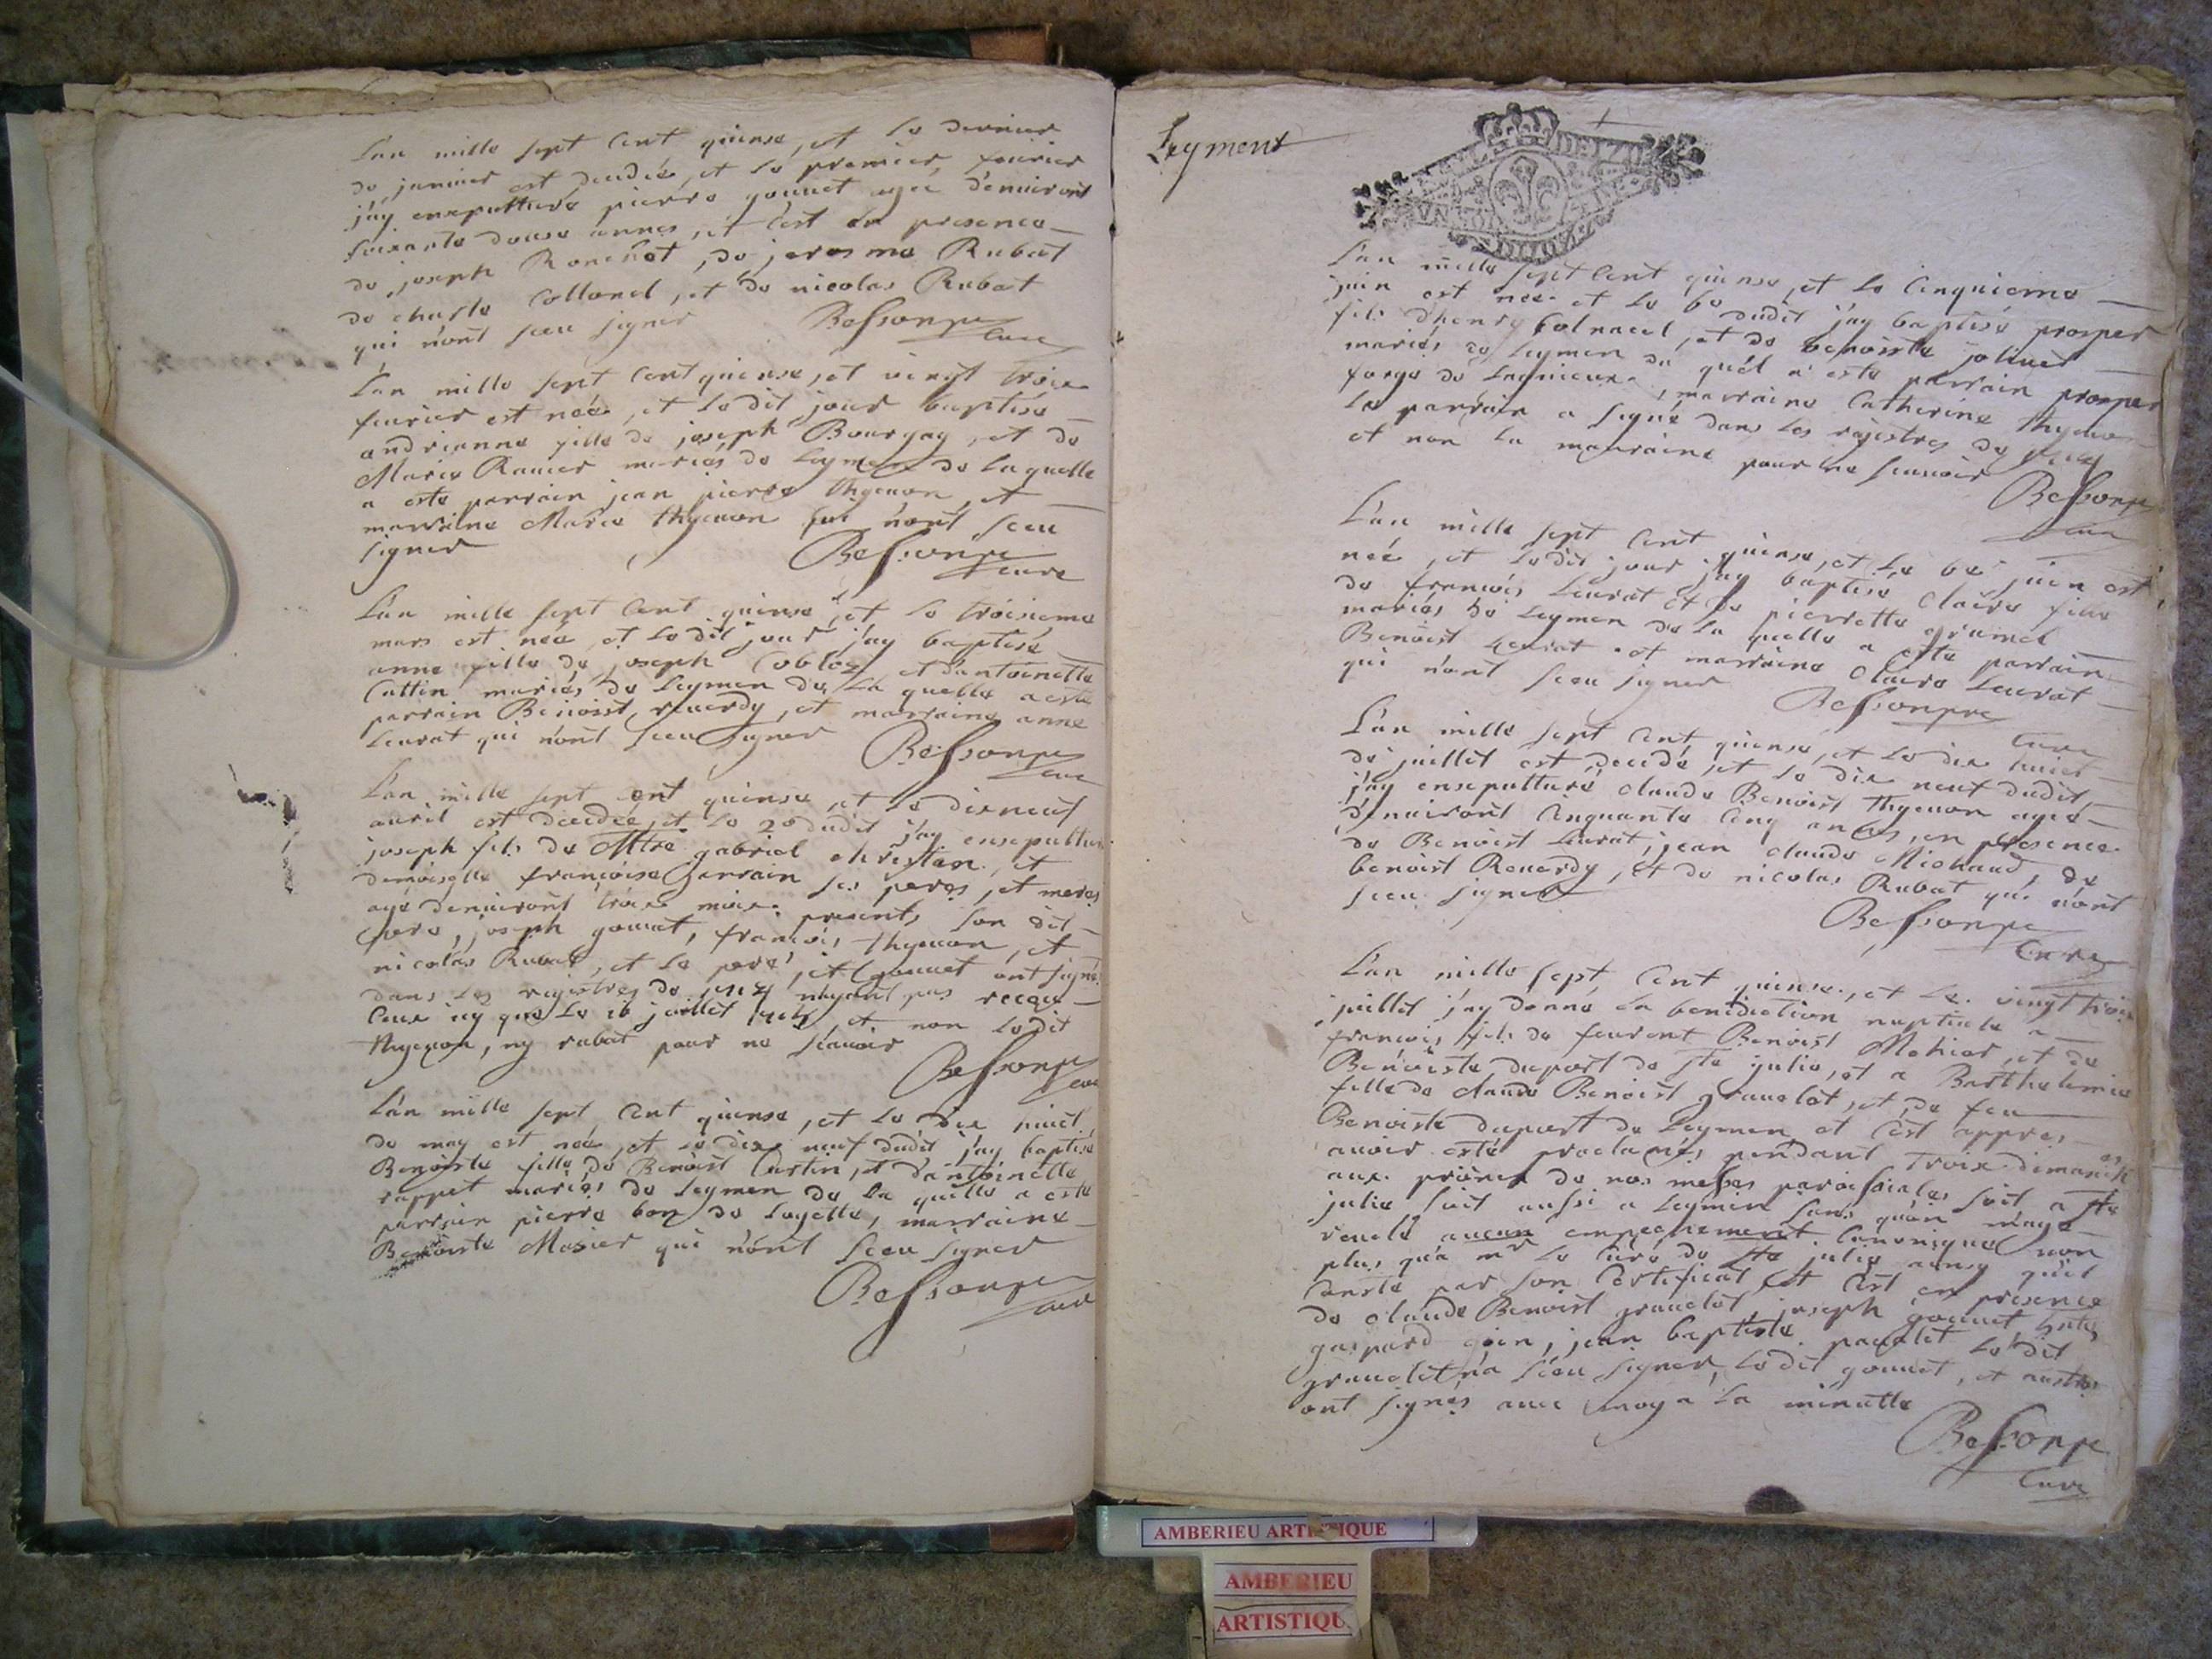 L'an mille sept cent quinse, et le dernier
de janvier est decedée, et le premier feurier
j'ay ensepulturé pierre gouuet agée d'enuiront
soixante douse annes, et c'est en presence
de joseph Ronchet, de jerosme Rubat
de charle Collond, et de nicolas Rubat
qui n'ont sceu signer Bessonpre
Curé
L'an mille sept cent quinse, et vingt troix
feurier est née, et ledit jour baptisé
andrianne fille de joseph Bourgay, et de
Marie Rauier mariés de leymen de laquelle
a esté parrain jean pierre thyeuon, et
marraine Marie thyeuon qui n'ont sceu
signer Bessonpre
curé
L'an mille sept cent quinse, et le troisieme
mars est née et ledit jour j'ay baptisé
anne fille de joseph Cobloz et d'antoinette
Cattin mariés de leymen de la quelle a esté
parrain Benoisst reuerdy, et marraine anne
leurat qui n'ont sceu signer Bessonpre
curé
L'an mille sept cent quinse, et le dixneuf
auril est decedée, et le 20 dudit j'ay ensepultur
joseph fils de Mtre gabriel christian, et
demoiselle françoise Jarrain ses peres, et meres
agé denuiront troix moix presents son dit
pere, joseph gouuet, francois thyeuon, et
nicolas Rubat, et le pere, et gouuet ont signé
dans les registres de n'ayant pas receu
ceux icy que le 16 juillet et non ledit
thyeuon, ny rubat pour ne scauoir
Bessonpre
curé
L'an mille sept cent quinse, et le dix huict
de may est née, et le dix neuf dudit j'ay baptisé
Benoiste fille de Benoist Cartin, et d'antoinette
rappet mariés de leymen de la quelle a esté
parrain pierre bon de layette, marraine
Benoiste Masier qui n'ont sceu signer
Bessonpre
curé
Leyment
L'an mille sept cent quinse, et le cinquieme
juin est née et le 6e dudit j'ay baptisé prosper
fils d'henry Colnacel, et de benoiste joliuet
mariés de leymen du quel a esté parrain prosper
forge de lagnieux, marraine Catherine thyeuon
le parrain a signé dans les registres de
et non la marraine pour ne scauoir
Bessonpre
curé
L'an mille sept cent quinse, et le 6e juin est
née, et ledit jour j'ay baptisé claire fille
de francois leurat et de pierrette grumel
mariés de leymen de la quelle a esté parrain
Benoist leurat et marraine claire leurat
qui n'ont sceu signer Bessonpre
Curé
L'an mille sept cent quinse, et le dix huict
de juillet est decedé, et le dix neuf dudit
j'ay ensepulturé claude Benoist thyeuon agée
d'enuiront cinquante cinq annes, en presence
de Benoist leurat, jean claude Michaud, de
benoist Reuerdy, et de nicolas Rubat qui n'ont
sceu signer
Bessonpre
Curé
L'an mille sept cent quinse, et le vingt troix
juillet j'ay donné la benediction nuptiale a
francois fils de feurent Benoist Mehier, et de
Benoiste dupart de ste julie, et a Barthelemie
fille de claude Benoist grauelot, et de feu
Benoiste dupart de leymen et c'est appres
auoir esté proclamés pendant troix dimanches
aux prônes de nos messes paroissiales soit a ste
julie, soit aussi a leymen sans qu'on m'aye
reuelé aucun empechement Canonique non
plus qu'a mr le curé de ste julie ainsy qu'il
Conste par son Certificat, et c'est en presence
de claude Benoist grauelot, joseph gouuet
gaspard goin, jean baptiste paualet ledit
grauelot n'a sceu signer, ledit gouuet, et austres
ont signés auec moy a la minutte
Bessonpre
Curé
AMBERIEU ARTISTIQUE
AMBERIEU
ARTISTIQU